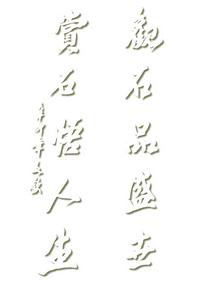 觀石品盛世
賞石悟人生